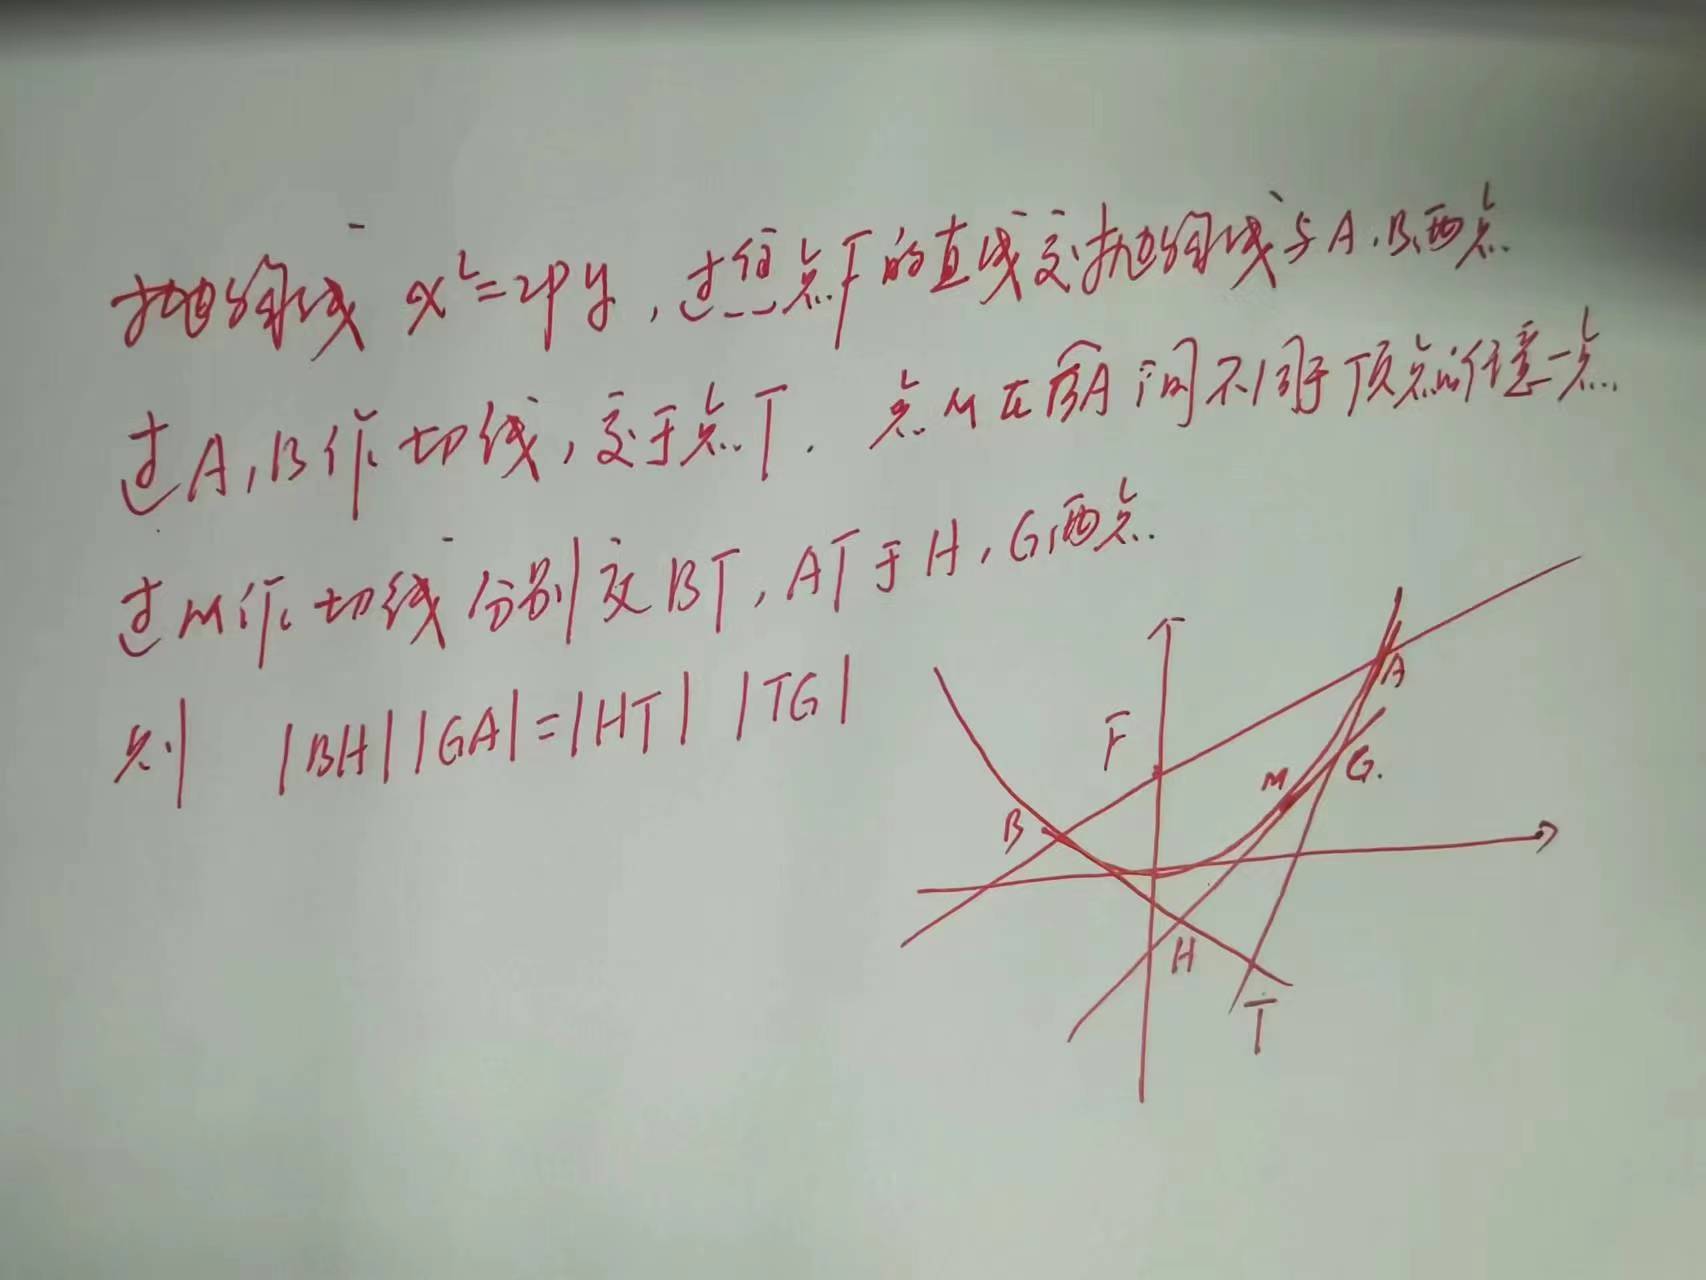 抛物线 x²=2py,过焦点F的直线交抛物线与A.B.两点.
过A,B作切线,交于点T. 点M在BA间不同于顶点的任意一点.
过M作切线分别交BT,AT于H,G两点.
则 |BH||GA|=|HT||TG|
F
A
M
G.
B
H
T